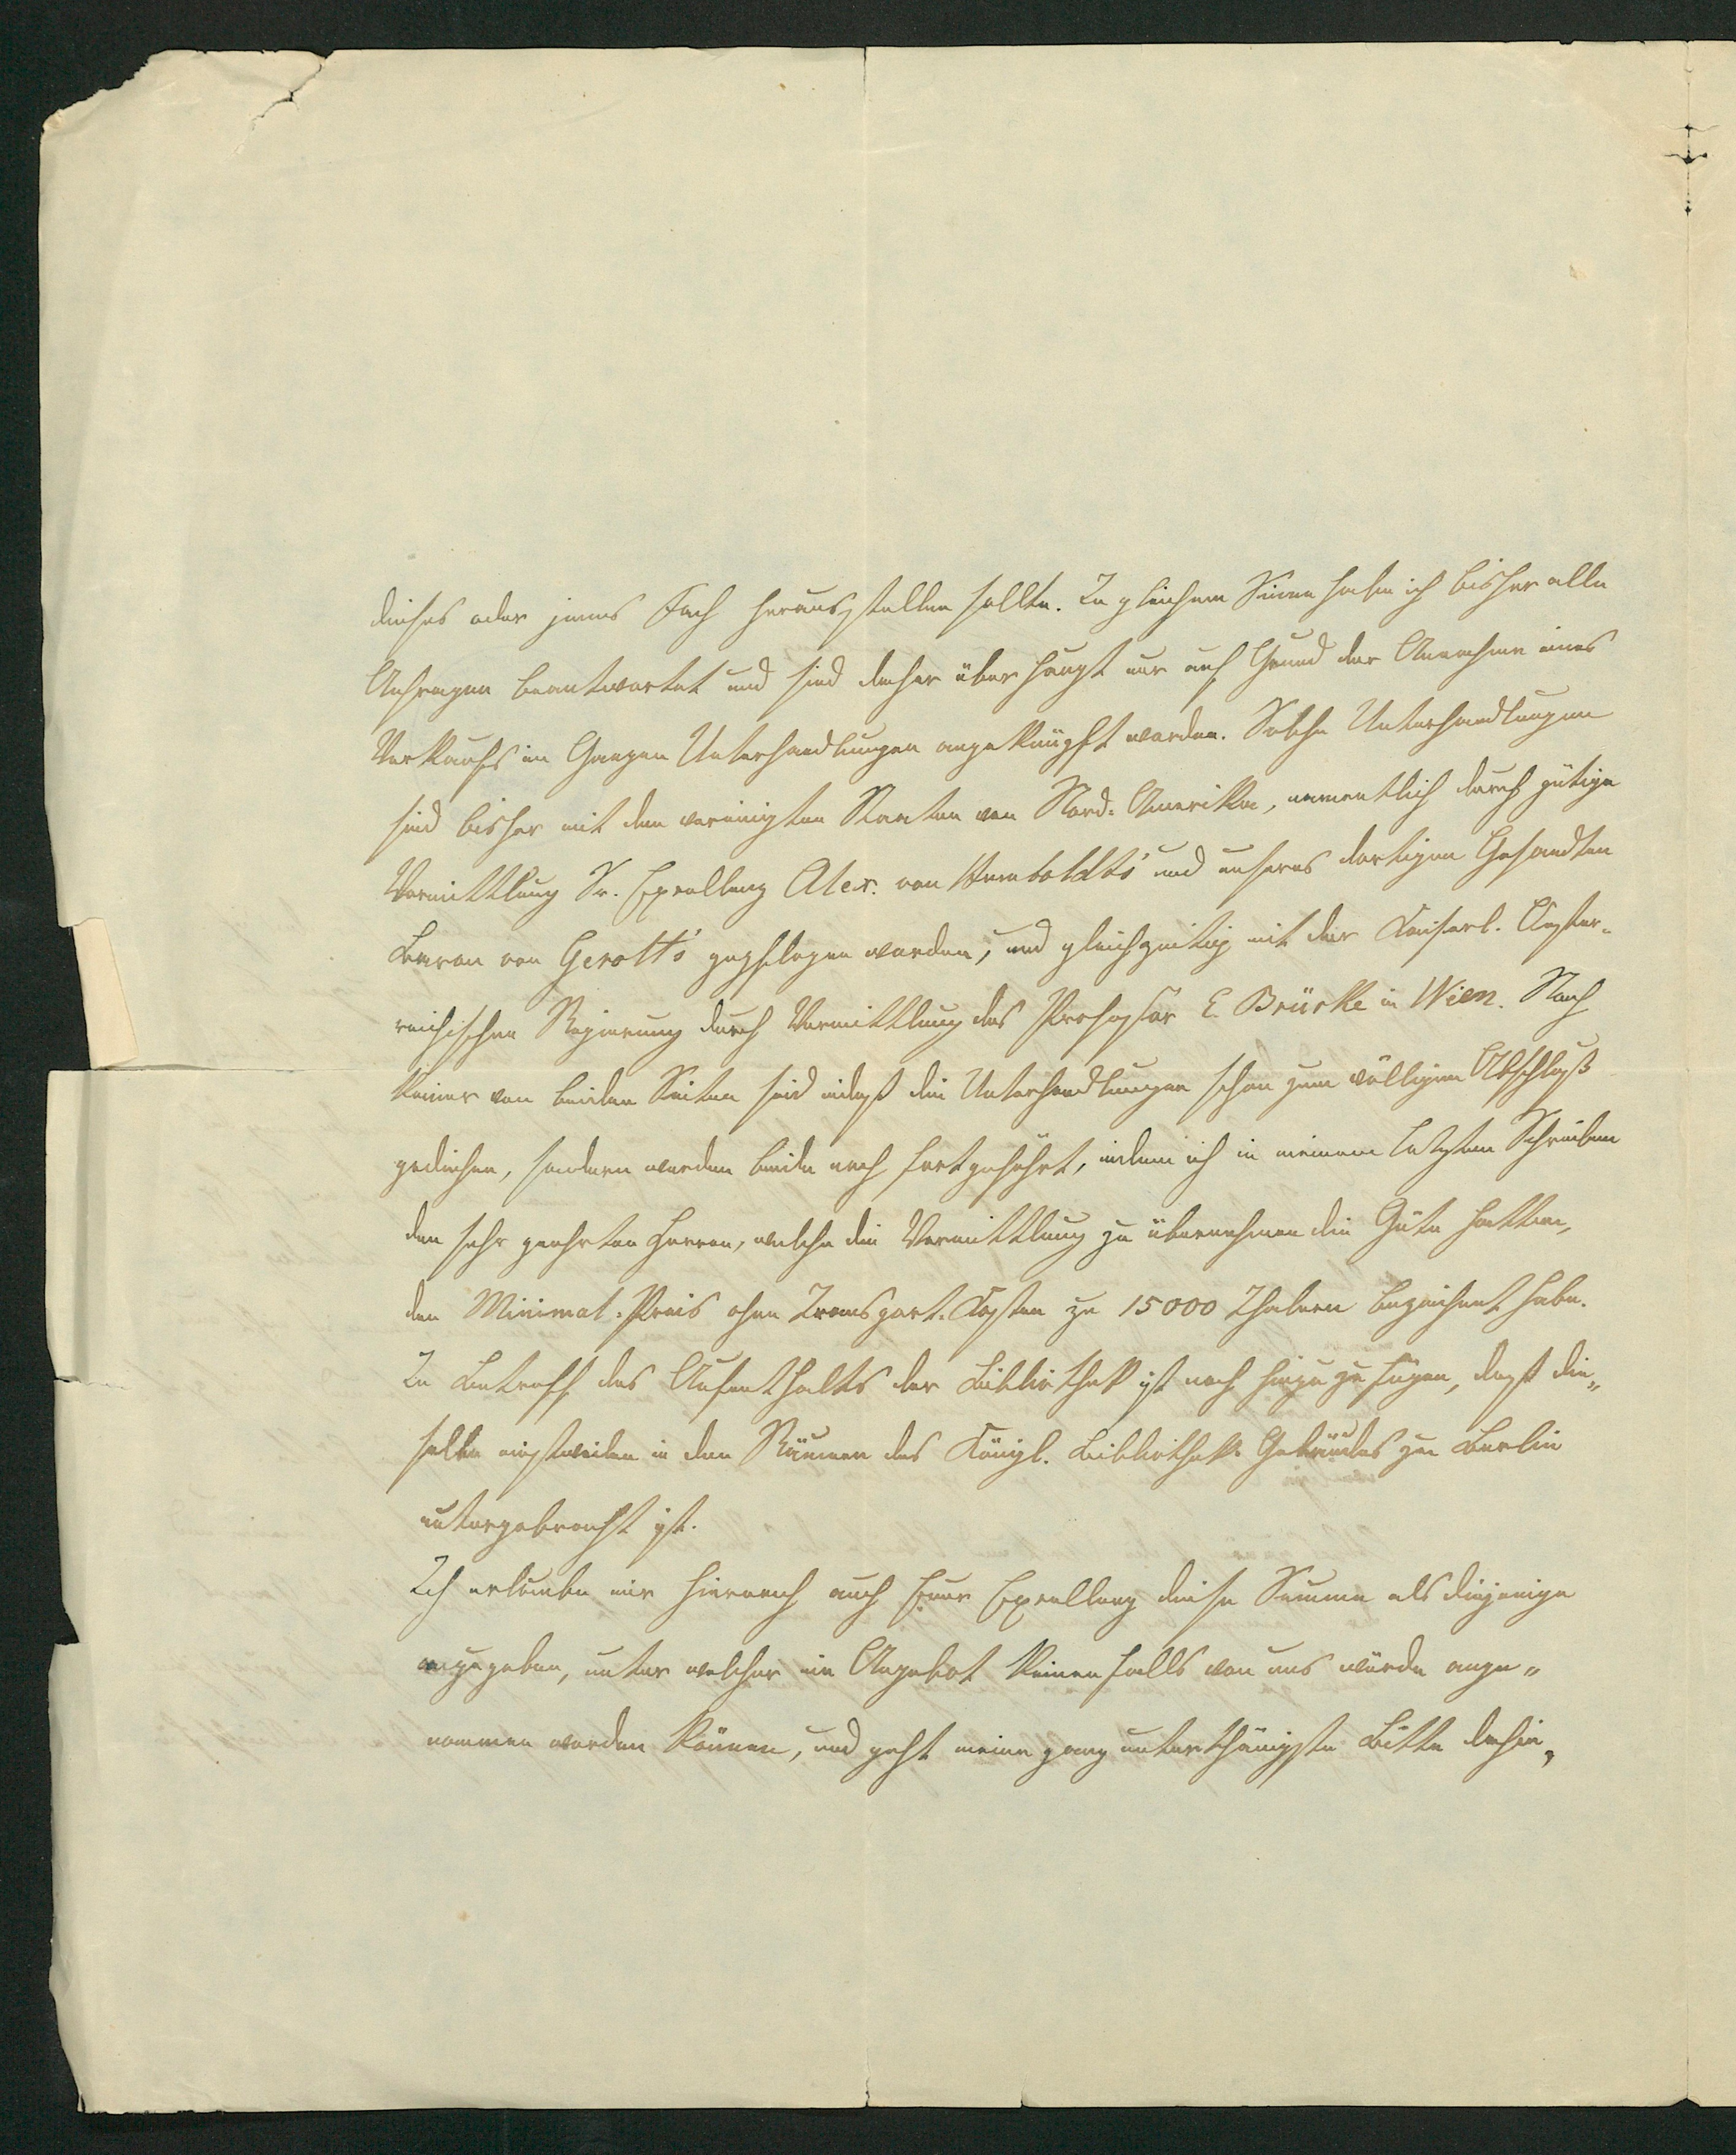 dieses oder jenes Fach herausstellen sollte. In gleichem Sinne habe ich bisher alle
Anfragen beantwortet und sind daher überhaupt nur auf Grund der Annahme eines
Verkaufs im Ganzen Unterhandlungen angeknüpft worden. Solche Unterhandlungen
sind bisher mit den vereinigten Staaten von Nord-Amerika, namentlich durch gütige
Vermittlung Sr. Excellenz Alex. von Humboldt's und unseres dortigen Gesandten
Baron von Gerolt's gepflogen worden, und gleichzeitig mit der Kaiserl. Oester-
reichischen Regierung durch Vermittlung des Professor E. Brücke in Wien. Nach
keiner von beiden Seiten sind indeß die Unterhandlungen schon zum völligen Abschluß
gediehen, sondern werden beide noch fortgeführt, indem ich in meinem letzten Schreiben
den sehr geehrten Herren, welche die Vermittlung zu übernehmen die Güte hatten,
den Minimal-Preis ohne Transport-Kosten zu 15000 Thalern bezeichnet habe.
In Betreff des Aufenthalts der Bibliothek ist noch hinzuzufügen, daß die-
selbe einstweilen in den Räumen des Königl. Bibliothek-Gebäudes zu Berlin
untergebracht ist.
Ich erlaube mir hiernach auch Euer Excellenz diese Summe als diejenige
anzugeben, unter welcher ein Angebot keinenfalls von uns würde ange-
nommen werden können, und geht meine ganz unterthänigste Bitte dahin,